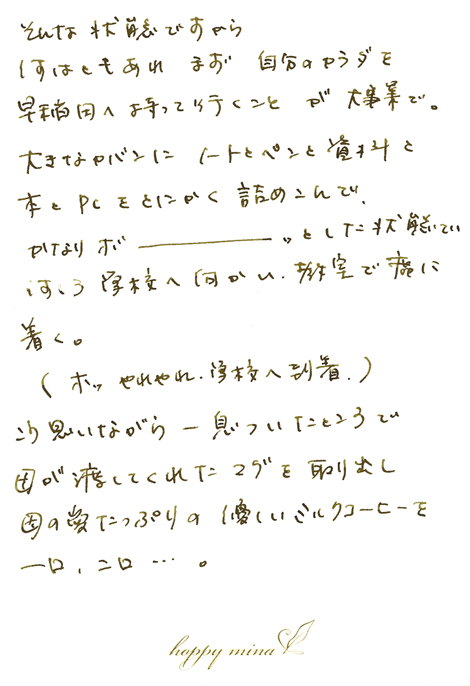 そんな状態ですから
何はともあれ まず 自分のカラダを
早稲田へ持って行くこと が 大事業で。
大きなカバンに ノートとペンと資料と
本とPCをとにかく詰めこんで、
かなり ボ――――ッとした状態で
学校へ向かい、教室で席に
着く。
(ホッ やれやれ、学校へ到着。)
と思いながら 一息ついたところで
母が渡してくれたマグを取り出し
母の愛たっぷりの優しいミルクコーヒーを
一口、二口…。
happy mina